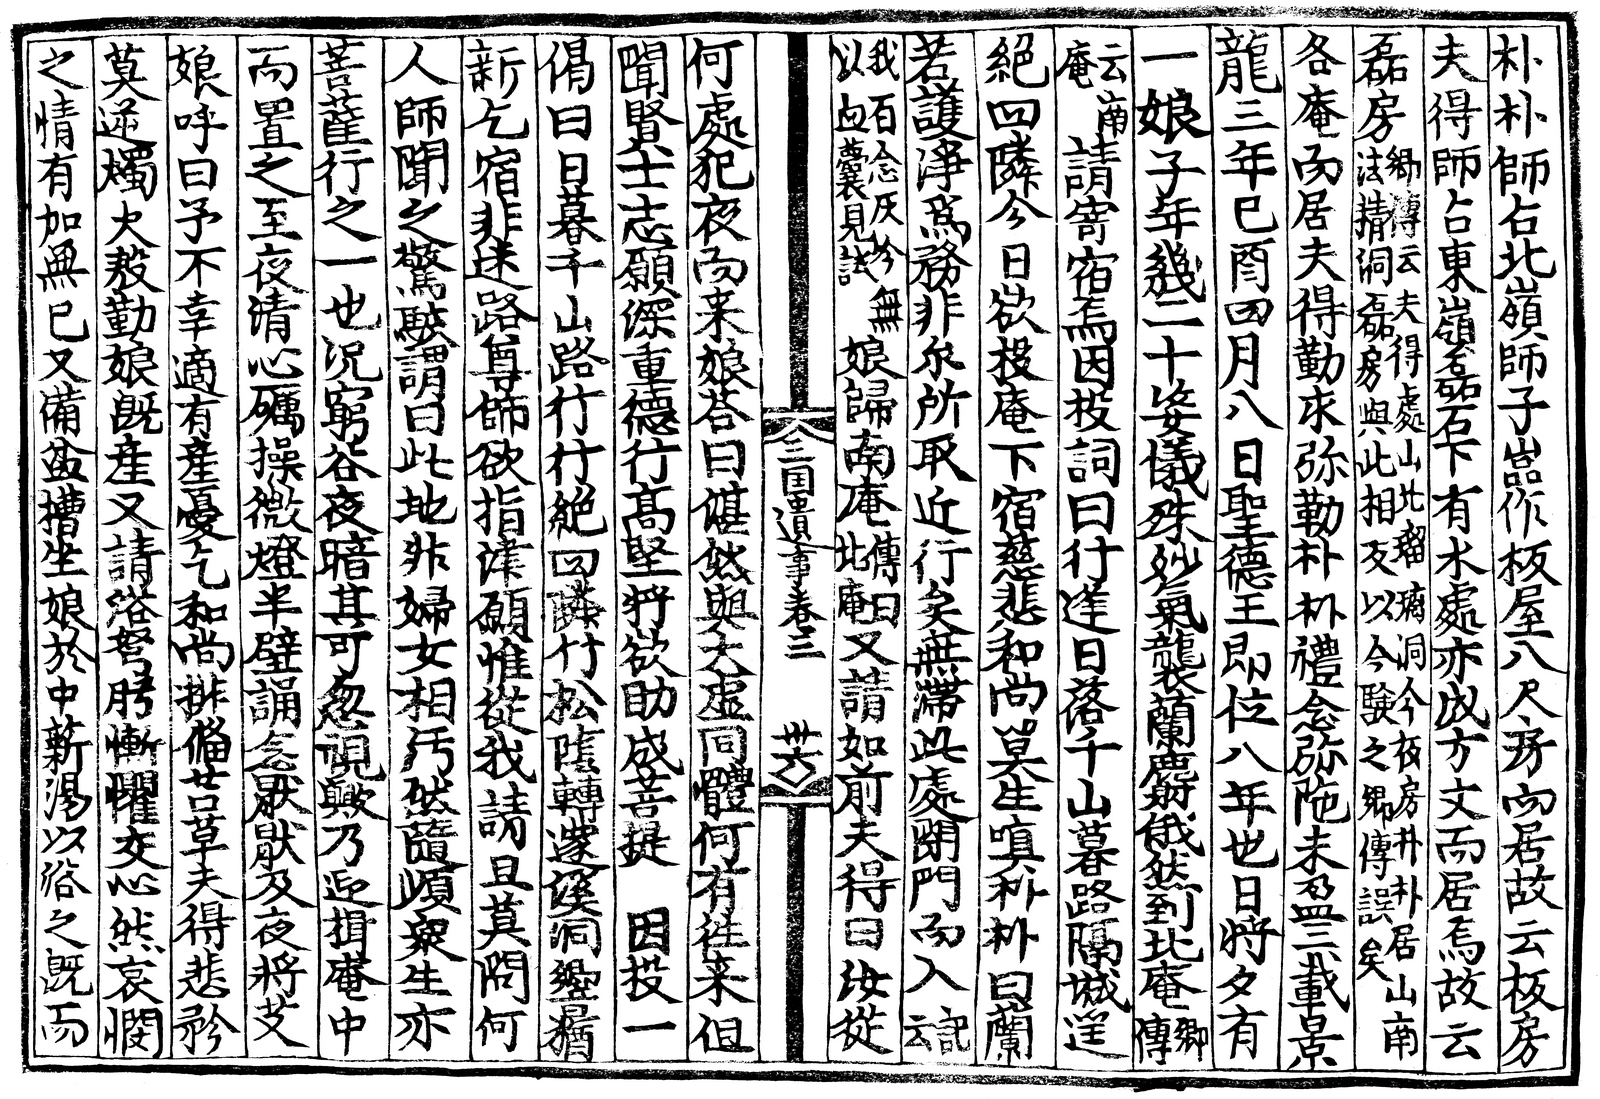 朴朴師占北嶺師子嵓作板屋八尺房而居故云板房
夫得師占東嶺磊石下有水處亦成方丈而居焉故云
磊房鄉傳云夫得處山北瑠璃洞今板房朴朴居山南法精洞磊房與此相反以今驗之鄉傳誤矣
各庵而居夫得勤求弥勒朴朴禮念弥陁未盈三載景
龍三年己酉四月八日聖德王即位八年也日將夕有
一娘子年幾二十姿儀殊妙氣襲蘭麝俄然到北庵鄉傳
云南庵請寄宿焉因投詞曰行逢日落千山暮路隔城遥
絕四隣今日欲投庵下宿慈悲和尚莫生嗔朴朴曰蘭
若護淨爲務非尔所取近行矣無滯此處閉門而入記云
我石念灰冷無以血囊見試娘歸南庵傳曰北庵又請如前夫得曰汝從
三国遺事卷三 卅六
何處犯夜而来娘荅曰湛然與太虛同體何有往来但
聞賢士志願深重德行高堅將欲助成菩提 因投一
偈曰日暮千山路行行絕四隣竹松隂轉邃溪洞響猶
新乞宿非迷路尊師欲指津願惟從我請且莫問何
人師聞之驚駭謂曰此地非婦女相汚然隨順衆生亦
菩薩行之一也况窮谷夜暗其可忽視歟乃迎揖庵中
而置之至夜清心礪操微燈半壁誦念厭厭及夜將艾
娘呼曰予不幸適有產憂乞和尚排備苫草夫得悲矜
莫逆燭火殷勤娘既產又請浴弩肹慚懼交心然哀憫
之情有加無已又備盆槽坐娘於中薪湯以浴之既而